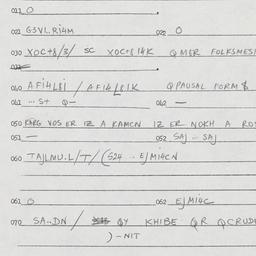 011 O
021 G3VL.RI4M 028 O
030 XOC+8/3/ SC XOC+8I4K Q MGR FOLKSMESI
040 AFI4L8I / AFI4L8IK Q PAUSAL FORM $
041 ... S+ Q— 042 —
050 KARG VOS ER IZ A KAMCN IZ ER NOKH A ROS
051 — 052 SAJ - SAJ
060 TAJLMU.L/T/(S24 .. EJMI4CN
061 O 062 EJMI4C
070 SA..DN / QY KHIBE QR QCRUD
) - NIT